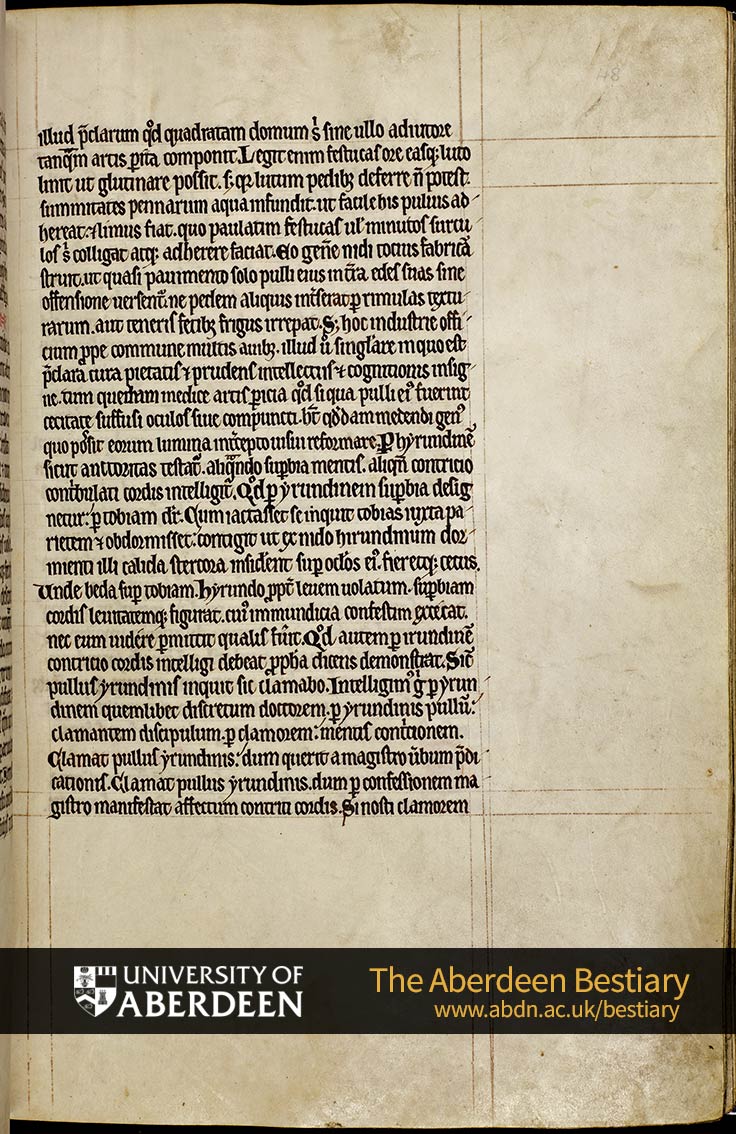 48
illud p̄clarum qd̄ quadratam domum s̄ sine ullo adiutore
tanq̄m artis ꝑita componit. Legit enim festucas ore easq; luto
linit ut glutinare possit. s; qꝛ lutum pedibꝫ deferre n̄ potest.
summitates pennarum aqua infundit. ut facile his puluis ad
hereat. ⁊ limus fiat. quo paulatim festucas ul̄ minutos surcu
los s̄ colligat atq; adherere faciat. Eo gen̄e nidi totius fabricā
struit. ut quasi pauimento solo pulli eius in ct̄ra edes suas sine
offensione uersent̄. ne pedem aliquis int̄serat ꝑ rimulas textu
rarum. aut teneris fetibꝫ frigus irrepat. S; hoc industrie offi
cium ꝓpe commune multis auibꝫ. illud ū singl̄are in quo est
p̄clara cura pietatis ⁊ prudens intellectus ⁊ cognitionis insig
ne. tum quedam medice artis ꝑicia qd̄ si qua pulli ei⁹ fuerint
cecitate suffusi oculos siue compuncti. ht̄ qd̄dam medendi gen⁹
quo possit eorum lumina int̄cepto uisui reformare. P hyrundinē
sicut auctoritas testat̄. aliqn̄do suꝑbia mentis. aliqn̄ contricio
cont̄bulati cordis intelligit̄. Qd̄ ꝑ yrundinem suꝑbia desig
netur: ꝑ tobiam dr̄. Cum iactasset se inquit tobias iuxta pa
rietem ⁊ obdormisset: contigit ut ex nido hirundinum dor
mienti illi calida stercora insid̄ent suꝑ oclos ei⁹. fieretq; cecus.
Unde beda suꝑ tobiam. Hyrundo ꝓpt̄ leuem uolatum. suꝑbiam
cordis leuitatemq; figurat. cui⁹ immundicia confestim excecat.
nec eum uidere ꝑmittit qualis fūit. Qd̄ autem ꝑ irundinē
contricio cordis intelligi debeat ꝓph̄a dicens demonstrat. Sic̄
pullus yrundinis inquit sic clamabo. Intelligim⁹ g̊ ꝑ yrun
dinem quemlibet discretum doctorem. ꝑ yrundinis pullū:
clamantem discipulum. ꝑ clamorem: mentis cont̄cionem.
Clamat pullus yrundinis: dum querit a magistro ūbum p̄di
cationis. Clamat pullus yrundinis. dum ꝑ confessionem ma
gistro manifestat affectum contriti cordis. Si nosti clamorem
UNIVERSITY OF
ABERDEEN
The Aberdeen Bestiary
www.abdn.ac.uk/bestiary